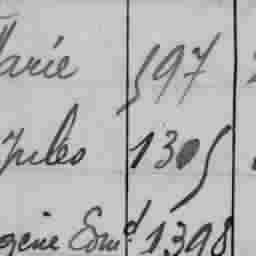 Marie 597
Jules 1305
gène Emd 1398